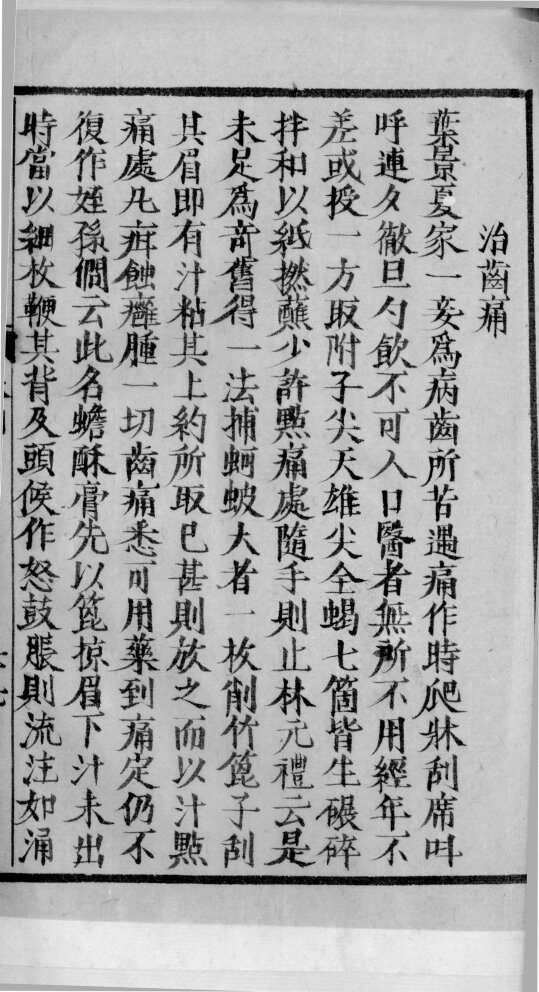 治齒痛
葉景夏家一妾爲病齒所苦遇痛作時爬牀刮席叫
呼連夕徹旦勺飲不可入口醫者無所不用經年不
差或授一方取附子尖天雄尖全蝎七箇皆生碾碎
拌和以紙撚蘸少許點痛處隨手則止林元禮云是
未足爲奇舊得一法捕蚵蚾大者一枚削竹篦子刮
其眉即有汁粘其上約所取已甚則放之而以汁點
痛處凡疳蝕癰腫一切齒痛悉可用藥到痛定仍不
復作姪孫僩云此名蟾酥膏先以篦掠眉下汁未出
時當以細杖鞭其背及頭候作怒鼓脹則流注如涌